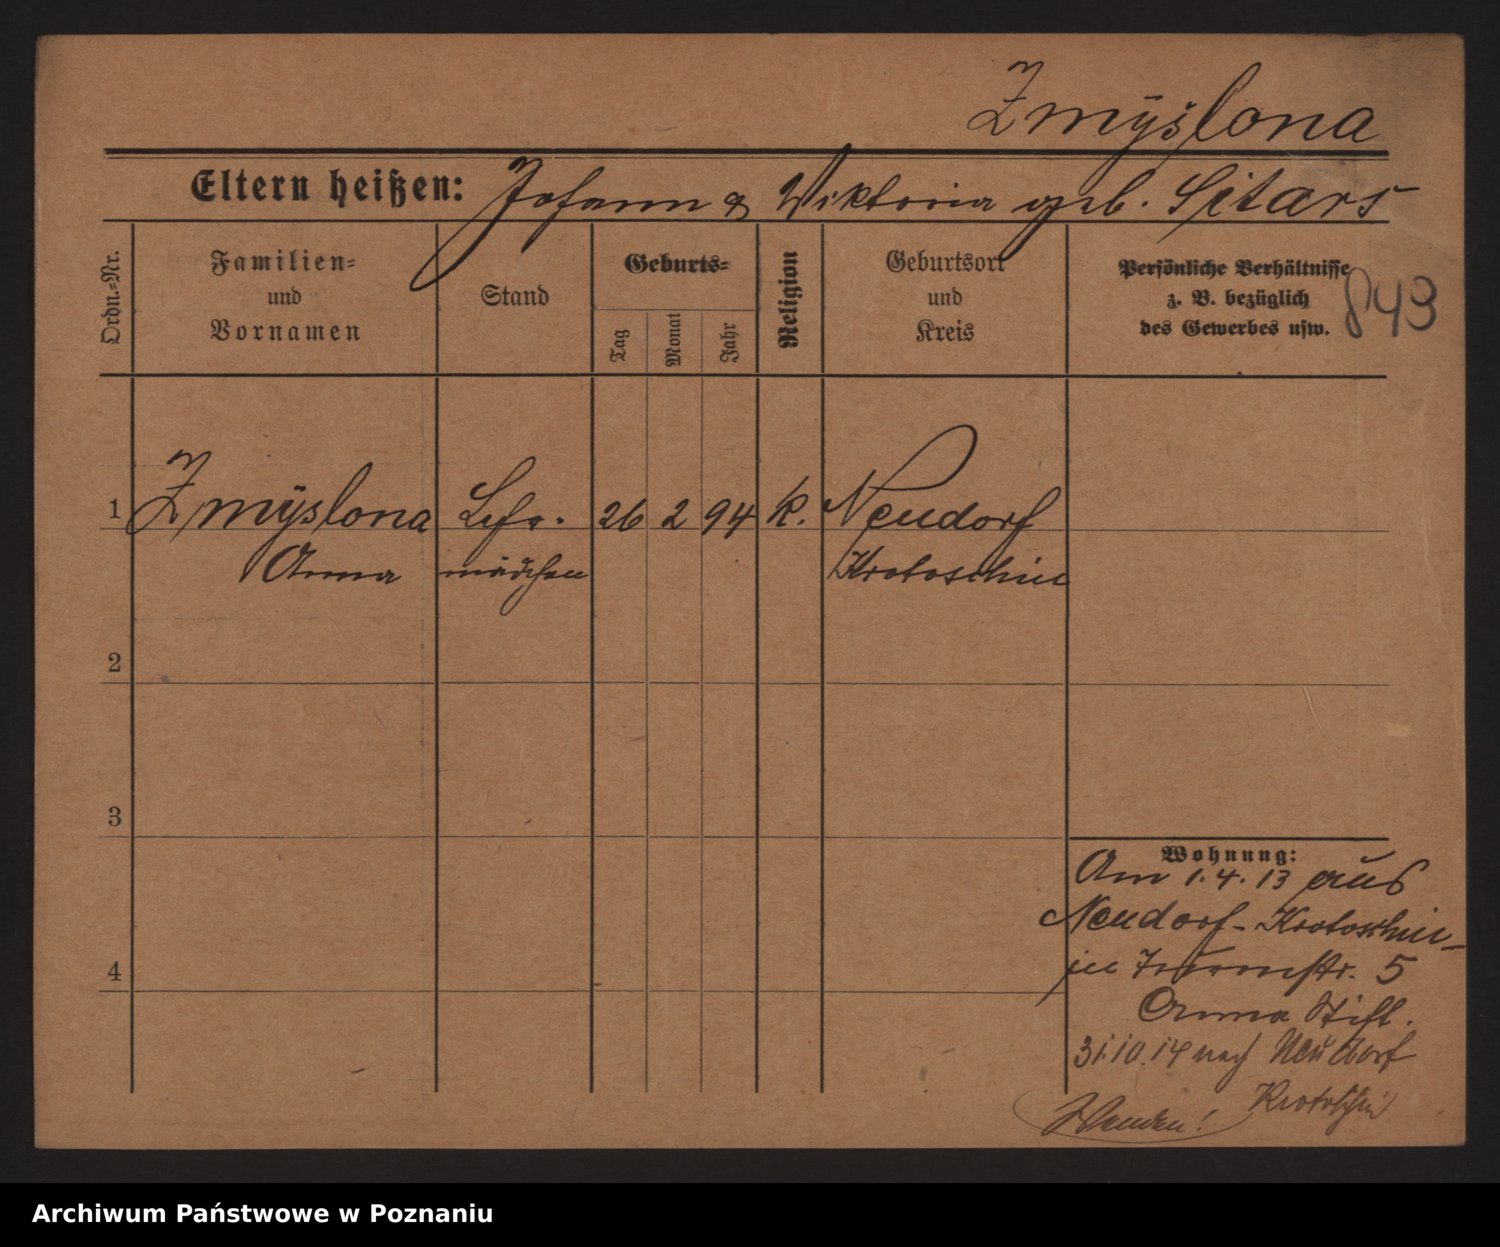 Zmÿslona
Eltern heißen: Johann & Wiktoria geb. Sitars
Ordn.=Nr.
Familien=
und
Vornamen
Stand
Geburts=
Tag
Monat
Jahr
Religion
Geburtsort
und
Kreis
Persönliche Verhältnisse
z. B. bezüglich
des Gewerbes usw.
843
1 Zmÿslona Lehr. 26 2 94 k. Neudorf
Anna mädchen Krotoschin
2
3
4
Wohnung:
Am 1.4.13 aus
Neudorf-Krotoschin-
in Turmstr. 5
Anna Stift.
31.10.14 nach Neudorf
Krotoschin
Wenden!
Archiwum Państwowe w Poznaniu